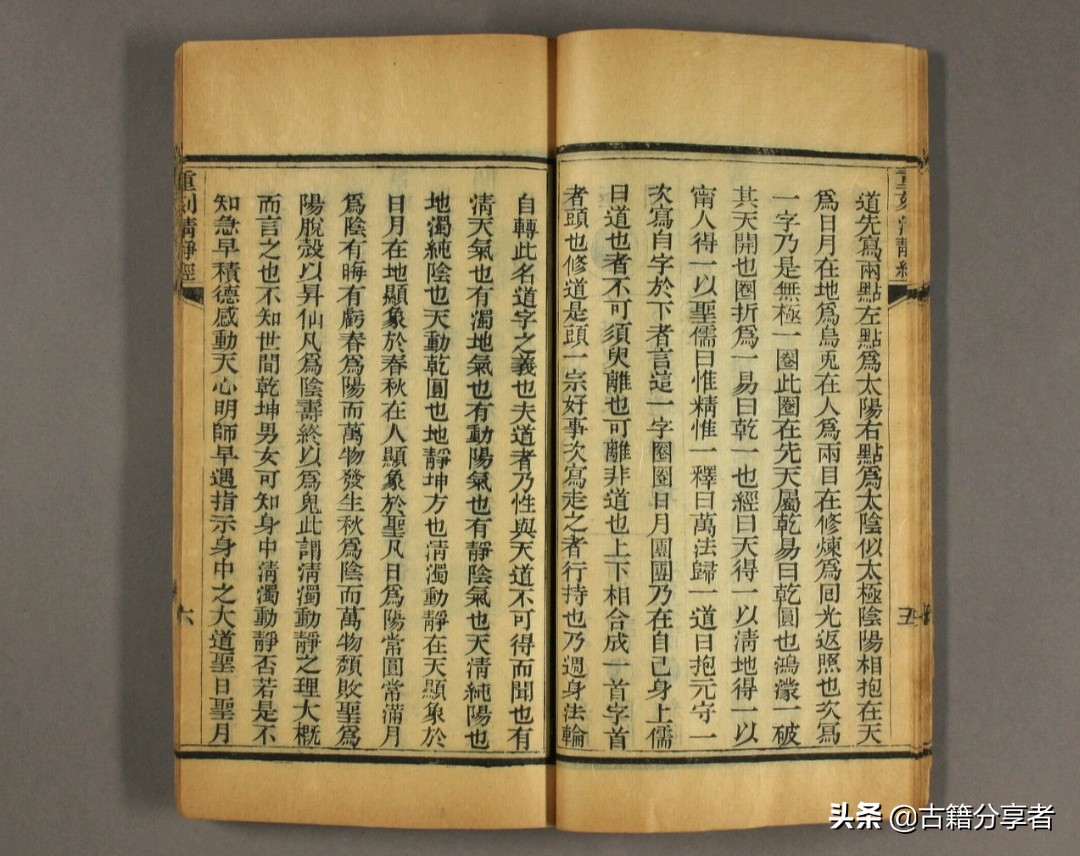 重刻清靜經
道先寫兩點左點為太陽右點為太陰似太極陰陽相抱在天
為日月在地為烏兎在人為兩目在修煉為囘光返照也次寫
一字乃是無極一圈此圈在先天屬乾易曰乾圓也鴻濛一破
其天開也圈折為一易曰乾一也經曰天得一以清地得一以
甯人得一以聖儒曰惟精惟一釋曰萬法歸一道曰抱元守一
次寫自字於下者言這一字圈圈日月團團乃在自己身上儒
曰道也者不可須臾離也可離非道也上下相合成一首字首
者頭也修道是頭一宗好事次寫走之者行持也乃週身法輪
五
自轉此名道字之義也夫道者乃性與天道不可得而聞也有
清天氣也有濁地氣也有動陽氣也有靜陰氣也天清純陽也
地濁純陰也天動乾圓也地靜坤方也清濁動靜在天顯象於
日月在地顯象於春秋在人顯象於聖凡日為陽常圓常滿月
為陰有晦有虧春為陽而萬物發生秋為陰而萬物頹敗聖為
陽脫殼以昇仙凡為陰壽終以為鬼此謂清濁動靜之理大概
而言之也不知世間乾坤男女可知身中清濁動靜否若是不
知急早積德感動天心明師早遇指示身中之大道聖日聖月
重刻清靜經
六
头条 @古籍分享者